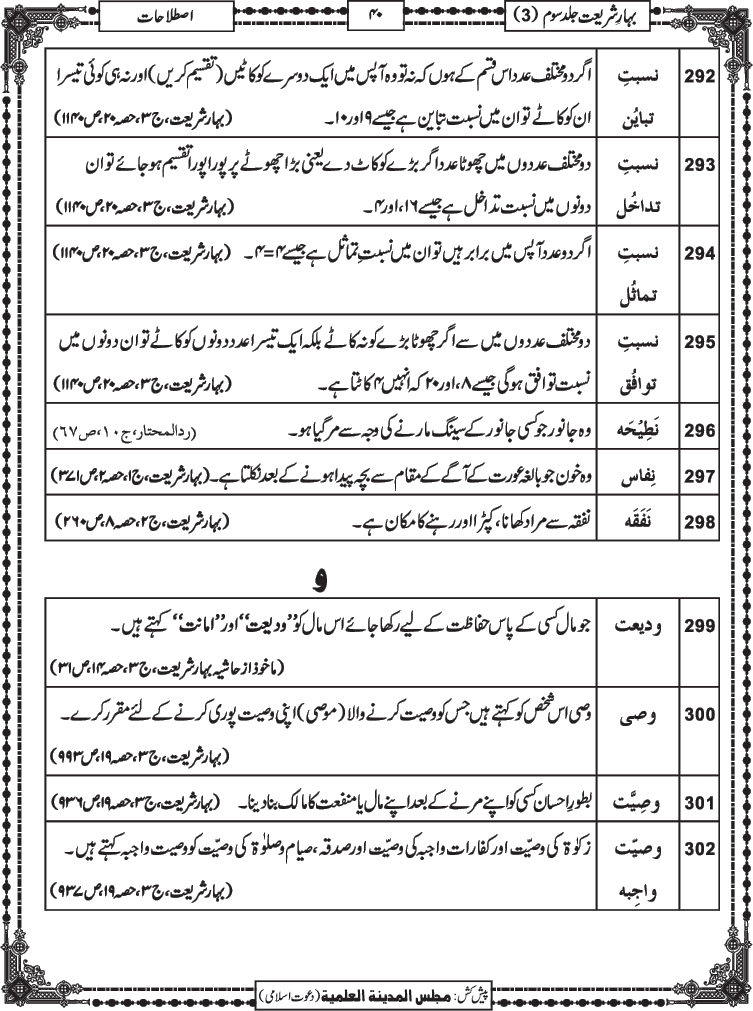 بہارِ شریعت جلد سوم (3)
۴۰
اصطلاحات
292 نسبتِ اگر دو مختلف عدد اس قسم کے ہوں کہ نہ تو وہ آپس میں ایک دوسرے کو کاٹیں (تقسیم کریں) اور نہ ہی کوئی تیسرا
تبایُن ان کو کاٹے تو ان میں نسبت تباین ہے جیسے ۹ اور ۱۰۔ (بہار شریعت، ج۳، حصہ ۲۰، ص۱۱۴۰)
293 نسبتِ دو مختلف عددوں میں چھوٹا عدد اگر بڑے کو کاٹ دے یعنی بڑا چھوٹے پر پورا پورا تقسیم ہو جائے تو ان
تداخُل دونوں میں نسبت تداخل ہے جیسے ۱۶، اور ۴۔ (بہار شریعت، ج۳، حصہ ۲۰، ص۱۱۴۰)
294 نسبتِ اگر دو عدد آپس میں برابر ہیں تو ان میں نسبتِ تماثل ہے جیسے ۴=۴۔ (بہار شریعت، ج۳، حصہ ۲۰، ص۱۱۴۰)
تماثُل
295 نسبتِ دو مختلف عددوں میں سے اگر چھوٹا بڑے کو نہ کاٹے بلکہ ایک تیسرا عدد دونوں کو کاٹے تو ان دونوں میں
توافُق نسبت توافق ہوگی جیسے ۸، اور ۲۰ کہ انہیں ۴ کاٹتا ہے۔ (بہار شریعت، ج۳، حصہ ۲۰، ص۱۱۴۰)
296 نَطِیْحَه وہ جانور جو کسی جانور کے سینگ مارنے کی وجہ سے مر گیا ہو۔ (ردالمحتار، ج۱۰، ص۶۷)
297 نِفاس وہ خون جو بالغہ عورت کے آگے کے مقام سے بچہ پیدا ہونے کے بعد نکلتا ہے۔ (بہار شریعت، ج۱، حصہ ۲، ص۳۷۱)
298 نَفَقَه نفقہ سے مراد کھانا، کپڑا اور رہنے کا مکان ہے۔ (بہار شریعت، ج۲، حصہ ۸، ص۲۶۰)
و
299 ودیعت جو مال کسی کے پاس حفاظت کے لیے رکھا جائے اس مال کو ”ودیعت“ اور ”امانت“ کہتے ہیں۔
(ماخوذ از حاشیہ بہار شریعت، ج۳، حصہ ۱۴، ص۳۱)
300 وصی وصی اس شخص کو کہتے ہیں جس کو وصیت کرنے والا (موصی) اپنی وصیت پوری کرنے کے لئے مقرر کرے۔
(بہار شریعت، ج۳، حصہ ۱۹، ص۹۹۳)
301 وصِیَّت بطورِ احسان کسی کو اپنے مرنے کے بعد اپنے مال یا منفعت کا مالک بنا دینا۔ (بہار شریعت، ج۳، حصہ ۱۹، ص۹۳۶)
302 وصیّت زکوٰۃ کی وصیّت اور کفارات واجبہ کی وصیّت اور صدقہ، صیام وصلوٰۃ کی وصیّت کو وصیت واجبہ کہتے ہیں۔
واجِبه (بہار شریعت، ج۳، حصہ ۱۹، ص۹۳۷)
پیش کش: مجلس المدینة العلمیة (دعوت اسلامی)